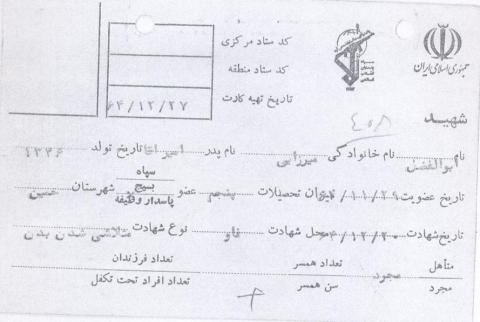 کد ستاد مرکزی
جمهوری اسلامی ایران
کد ستاد منطقه
تاریخ تهیه کارت ۶۴/۱۲/۲۷
شهید
۴۰۸
نام ابوالفضل نام خانوادگی میرزایی نام پدر امیراقا تاریخ تولد ۱۳۴۶
سپاه
تاریخ عضویت ۶۴/۱۱/۲۹ میزان تحصیلات پنجم عضو بسیج شهرستان خمین
پاسدار وظیفه
تاریخ شهادت ۶۴/۱۲/۲۰ محل شهادت فاو نوع شهادت متلاشی شدن بدن
متأهل تعداد همسر تعداد فرزندان
مجرد
مجرد سن همسر تعداد افراد تحت تکفل